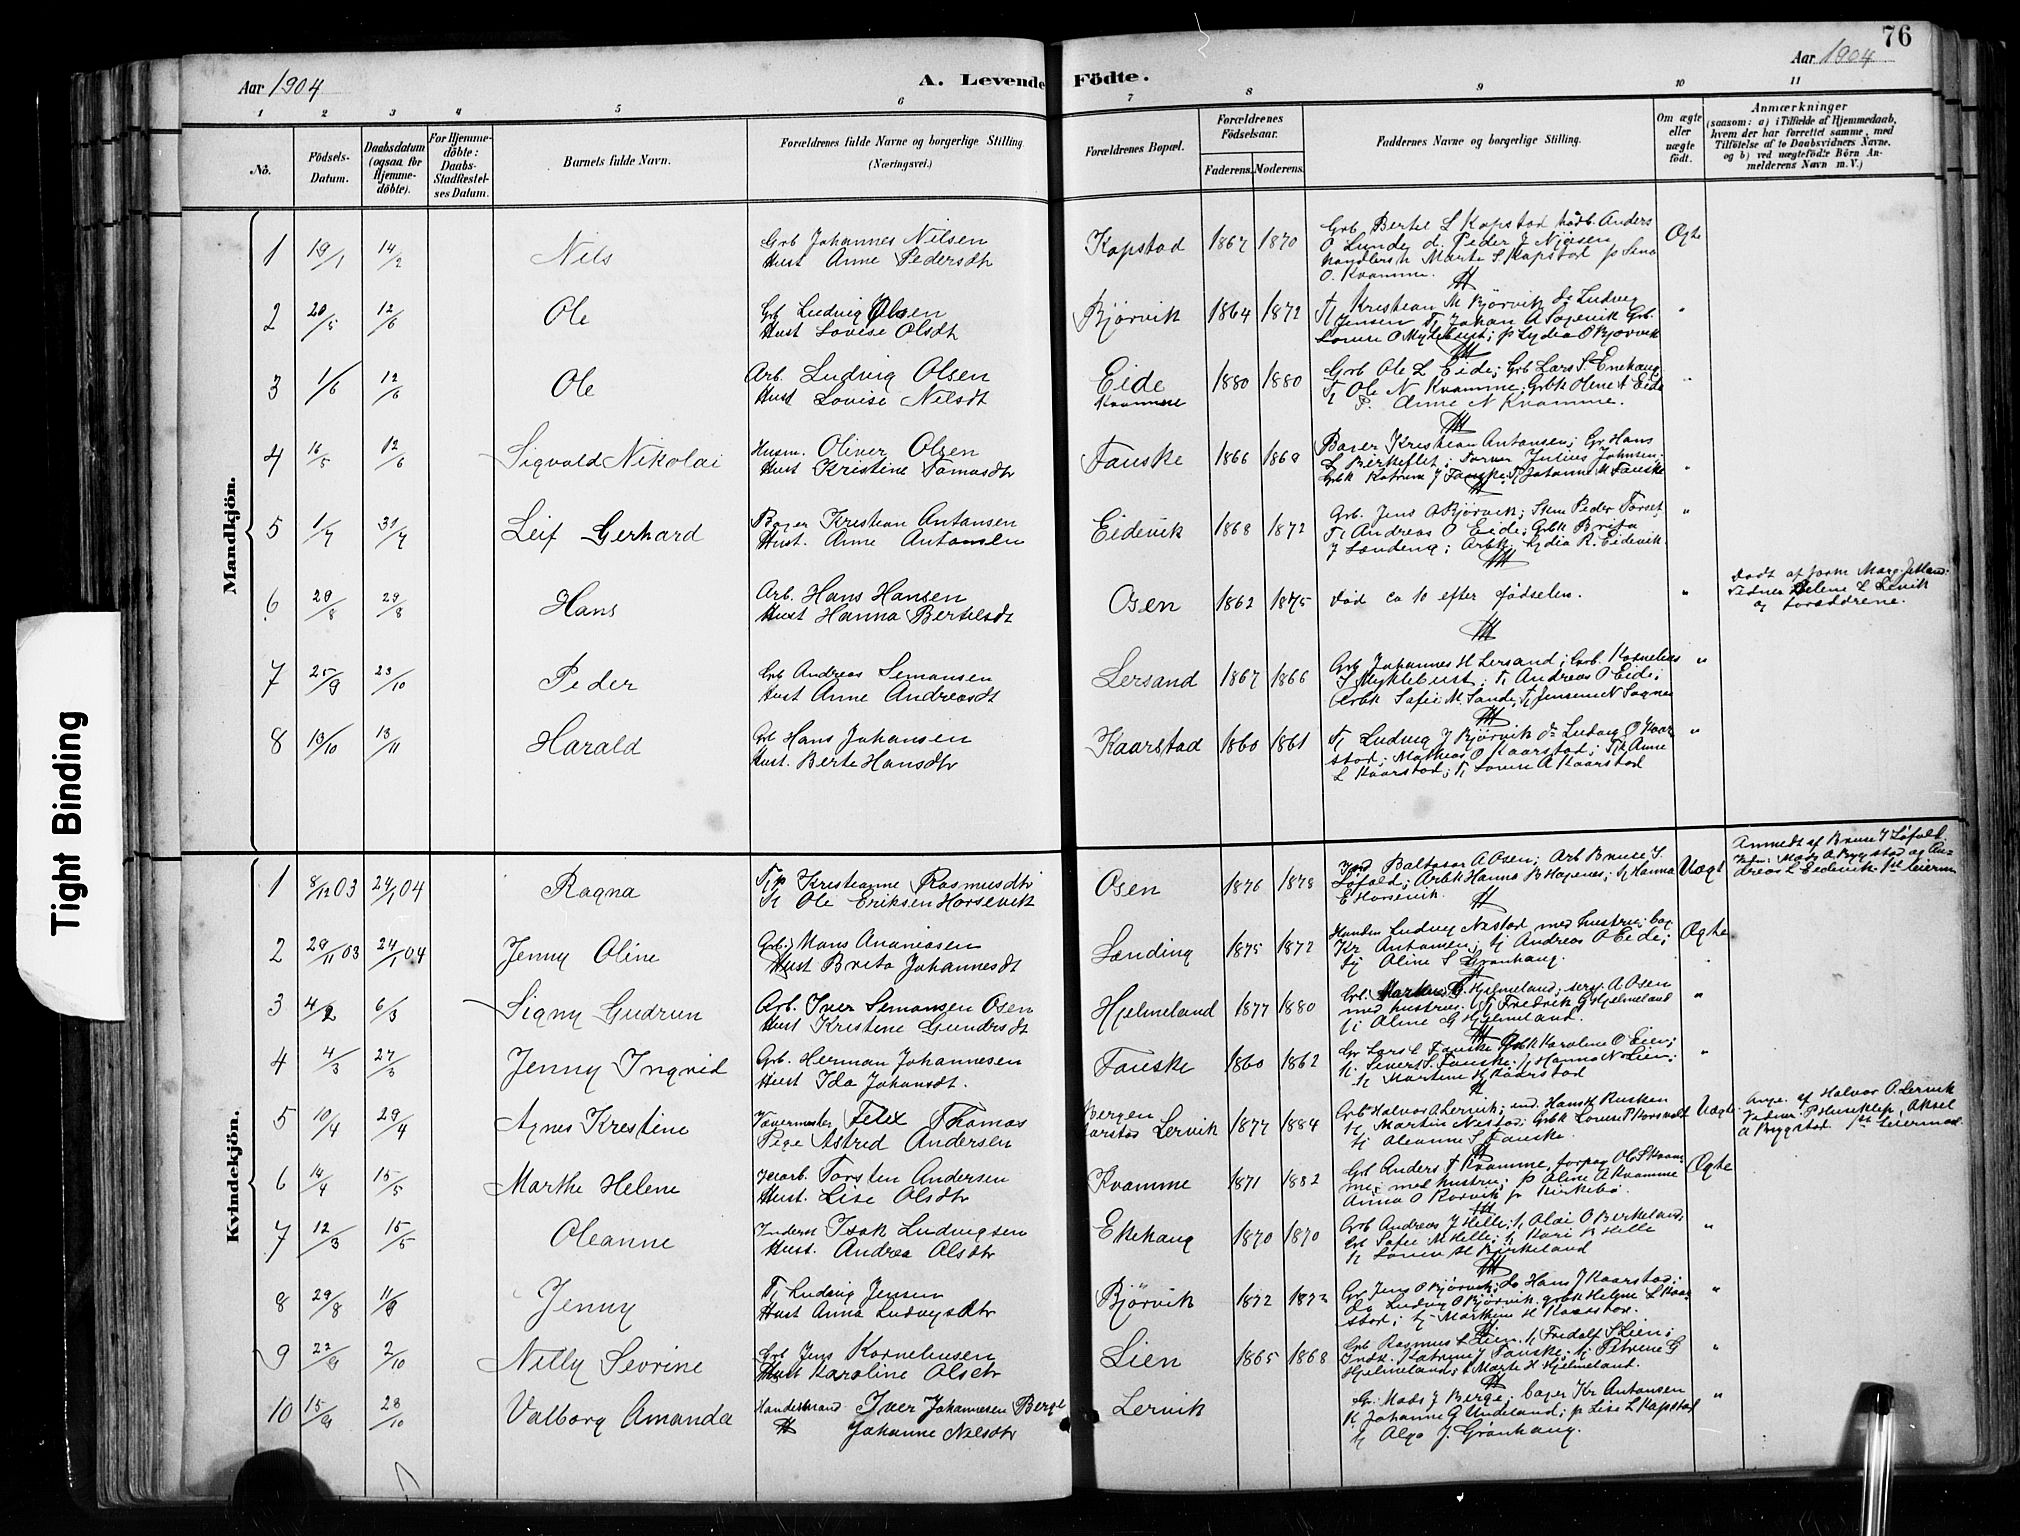 76
Aar 1904
A. Levende Födte.
Aar 1904
1 2 3 4 5 6 7 8 9 10 11
No.
Födsels-
Datum.
Daabsdatum
(ogsaa för
Hjemme-
döbte).
For Hjemme-
döbte:
Daabs-
Stadfestel-
ses Datum.
Barnets fulde Navn.
Forældrenes fulde Navne og borgerlige Stilling
(Næringsvei.)
Forældrenes Bopæl.
Forældrenes
Födselsaar.
Faderens. Moderens.
Faddernes Navne og borgerlige Stilling.
Om ægte
eller
uægte
födt.
Anmærkninger
(saasom: a) i Tilfælde af Hjemmedaab,
hvem der har forrettet samme, med
Tilföielse af to Daabsvidners Navne,
og b) ved uægtefödte Börn An-
melderens Navn m. V.)
Mandkjön.
1 19/1 14/2 Nils
Grb Johannes Nilsen
Hust Anne Pedersdtr
Kapstad 1867 1870
Grb Bertel L Kapstad Anders
O Lunde d. Peder J
Marte S Kapstad p
O. Kvamme.
Ægte
2 20/5 12/6 Ole
Grb Ludvig Olsen
Hust Lovise Olsdt
Bjørvik 1864 1872
Tj Kristian M Bjørvik do Ludvig
Jensen Tj Johan A Grb.
O Myklebust; p Lydia O Bjørvik
"
3 1/6 12/6 Ole
Arb. Ludvig Olsen
Hust Lovise Nilsdt
Eide
Kvamme
1880 1880
Grb Ole L Eide; Grb Lars S. Enehaug
Tj Ole N Kvamme; Grbk Oline A Eide
P. Anne N Kvamme.
"
4 16/5 12/6 Sigvald Nikolai
Husm. Oliver Olsen
Hust Kristine Tomasdtr
Fauske 1866 1869
Bager Kristian Antonsen; Gr Hans
L Birkeflet; Farver Julius Johnsen;
Grbk Katrina J Fauske; Tj Johanne M Fauske
"
5 1/7 31/7 Leif Gerhard
Bager Kristian Antonsen
Hust. Anne Antonsen
Eidevik 1868 1872
Grb. Jens O Bjørvik; Peder Torset
Tj Andreas O Eide; Grbk Brita
J Lænding; Arbk Lydia R. Eidevik.
"
6 29/8 29/8 Hans
Arb. Hans Hansen
Hust Hanna Bertelsdt
Osen 1862 1875
Død ca 10 efter fødselen.
"
Døbt af jorm Marg. Jetland
Vidner Helene L Lervik
og forældrene.
7 25/9 23/10 Peder
Grb Andreas Simonsen
Hust Anne Andreasdt
Lersand 1867 1866
Grb Johannes H Lersand; Grb. Kornelius
S Myklebust; Tj Andreas O Eide;
Grbk Sofie M. Sande; Tj Jensine N
"
8 13/10 13/11 Harald
Grb Hans Johansen
Hust. Berte Hansdtr
Kaarstad 1860 1861
Tj Ludvig J Bjørvik do Ludvig O Kaar
stad; Mathias O Kaarstad; Tj Anne
L Kaarstad; Tj Lovise A Kaarstad
"
Kvindekjön.
1 8/12 03 24/1 04 Ragna
Tjp Kristianne Rasmusdtr
Tj Ole Eriksen Horsevik
Osen 1876 1878
Baltasar A Osen; Arb Brune J.
Løfald; Arbk Hanna B Hagenes; Tj Hanna
E Horsevik.
Uægt
Anmeldt af Brune J Løfald
Vidn: Mads A Bygstad og An-
dreas L Eidevik 1ste leierm
2 29/11 03 24/1 04 Jenny Oline
Grb Mons Ananiasen
Hust Brita Johannesdt
Lænding 1875 1872
Ludvig Nestad med hustru; bag
Kr Antonsen; tj Andreas O Eide;
tj Aline S Grønhaug.
Ægte
3 4/2 6/3 Signy Gudrun
Arb. Iver Simonsen Osen
Hust Kristine Gundersdt
Hjelmeland 1877 1880
Grb. Hjelmeland; serg. A Osen
med hustru; Tj Fredrik G Hjelmeland
tj Aline G Hjelmeland.
"
4 4/3 27/3 Jenny Ingrid
Grb. Herman Johannesen
Hust Ida Johansdt.
Fauske 1860 1862
Gr Lars L Fauske Grbk Karoline O Lien;
tj. Sivert S. Fauske; tj Hanna N Lien;
tj Martine H Kaarstad
"
5 10/4 29/4 Agnes Kristine
Felix Thomas
Pige Astrid Andersen
Bergen
Lervik 1877 1884
Grb Halvor O Lervik; Hans H Husken
tj Martin Nestad; Grbk Lovise P Korsvold
tj Oleanne S Fauske.
Uægt
Ang. af Halvor O. Lervik
Vidner: P Huseklep, Aksel
A Bygstad 1ste leiermaal
6 14/4 15/5 Marthe Helene
Torsten Andersen
Hust. Lise Olsdtr
Kvamme 1871 1882
Grb Anders T Kvamme, forpag Ol S Kvam-
me; med hustru; p Oline A Kvamme
Anna O Rørvik p Kirkebø.
Ægte
7 12/3 15/5 Oleanne
Inderst Isak Ludvigsen
Hust. Andrea Olsdtr
Ekehaug 1870 1870
Grb Andreas J Helle; tj Olai O Birkeland;
Grb Sofie M Helle; tj Kari B Helle
tj Lovise H Birkeland
"
8 29/8 11/9 Jenny
Tj Ludvig Jensen
Hust Anna Ludvigsdtr
Bjørvik 1872 1873
Grb Jens O Bjørvik; do Hans J Kaarstad;
do Ludvig O Bjørvik grbk Helene L Kaar-
stad; tj Marthine H Kaarstad.
"
9 22/9 2/10 Nilly Sevrine
Grb Jens Korneliusen
Hust Karoline Olsdtr
Lien 1865 1868
Grb Rasmus L Lien. tj Fridolf S Lien;
Katrine J Fauske; tj Petrine G
Hjelmeland; t Marte H Hjelmeland.
"
10 15/9 23/10 Valborg Amanda
Handelsmand Iver Johannesen Berge
Johanne Nilsdtr
Lervik
Gr. Mads J Berge; bager Kr Antonsen
K Johanne G Undeland; p Lise L Kapstad
tj Olga J. Grønhaug.
"
Tight Binding